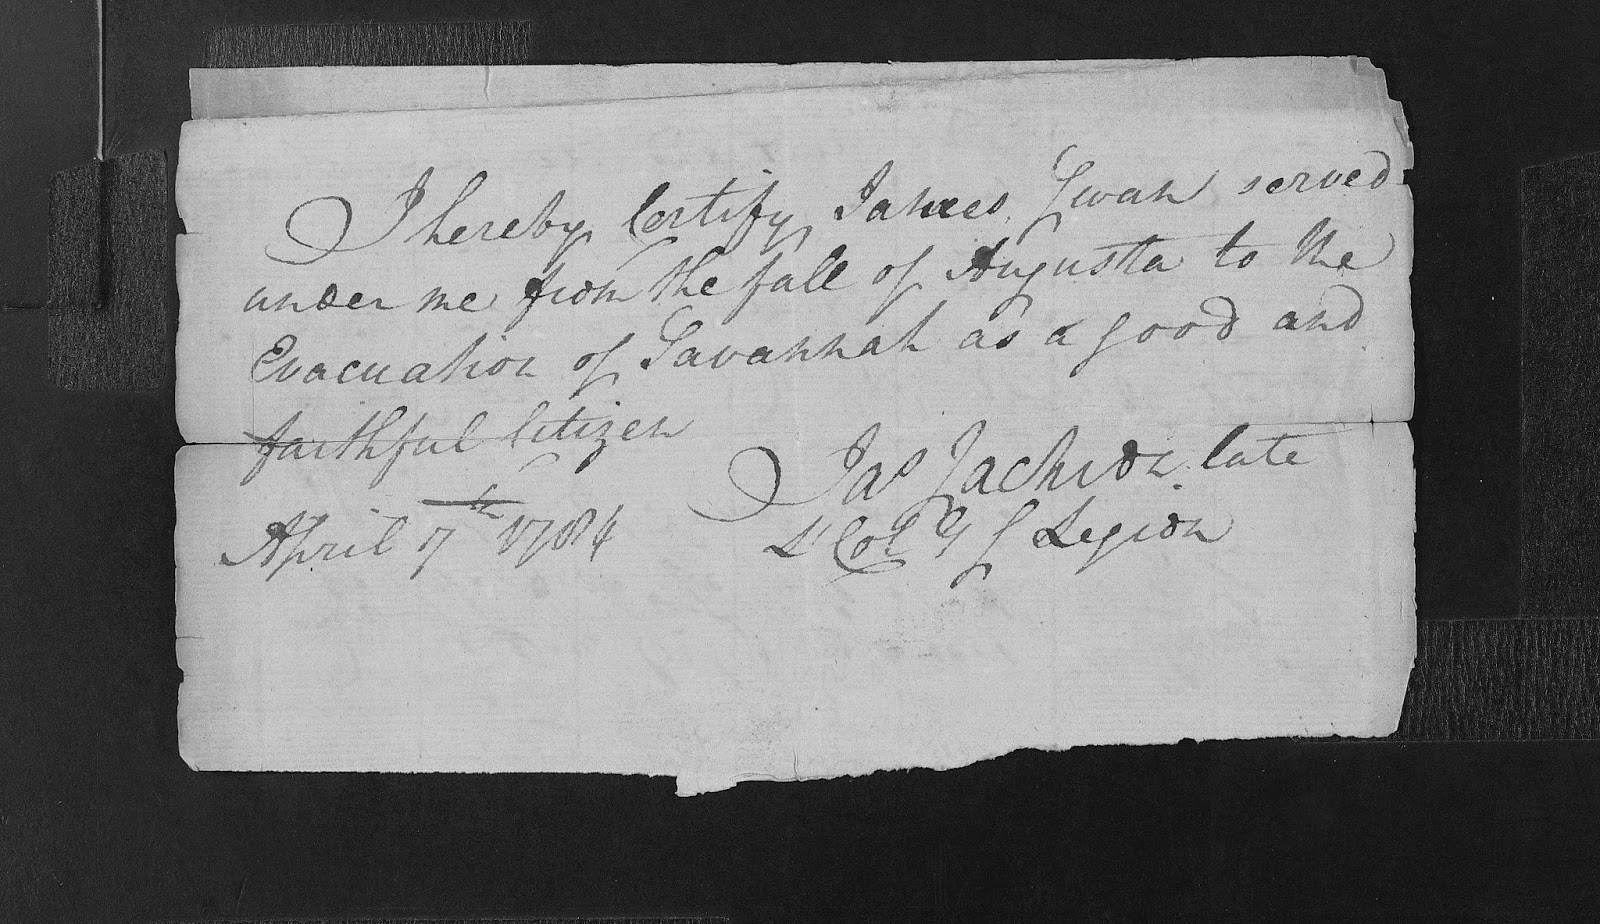 I hereby Certify James Swan served
under me from the fall of Augusta to the
Evacuation of Savannah as a good and
faithful Citizen
Jas Jackson late
April 7th 1784
Lt Col G S Legion